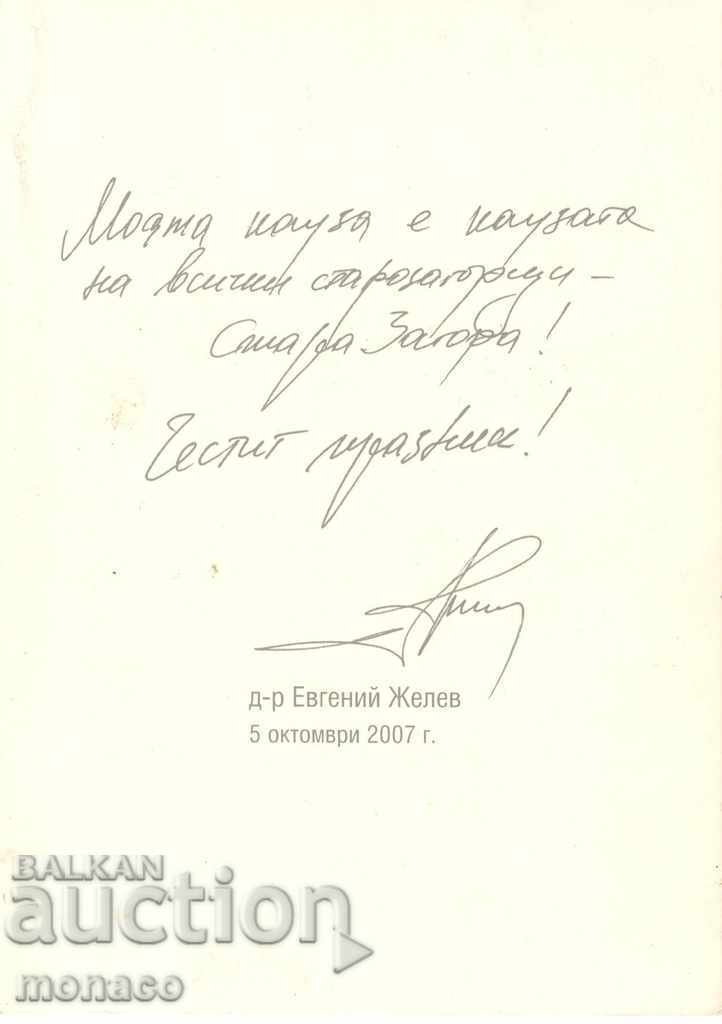 Моята кауза е каузата
на всички старозагорци –
Стара Загора!
Честит празник!
д-р Евгений Желев
5 октомври 2007 г.
BALKAN
auction
monaco